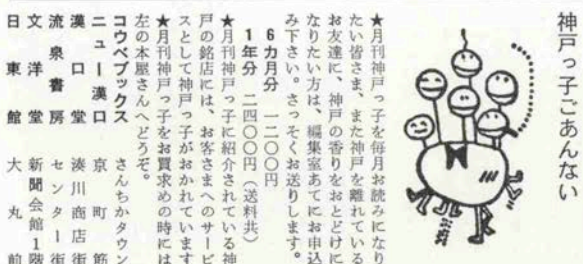 神戸っ子ごあんない
★月刊神戸っ子を毎月お読みになり
たい皆さま、また神戸を離れている
お友達に、神戸の香りをおとどけに
なりたい方は、編集室あてにお申込
み下さい。さっそくお送りします。
6カ月分 一二〇〇円
1年分 二四〇〇円(送料共)
★月刊神戸っ子に紹介されている神
戸の銘店には、お客さまへのサービ
スとして神戸っ子がおかれています
★月刊神戸っ子をお買求めの時には
左の本屋さんへどうぞ。
コウベブックス さんちかタウン
ニュー漢口 京町筋
漢口堂 湊川商店街
流泉書房 センター街
文洋堂 新聞会館1階
日東館 大丸前